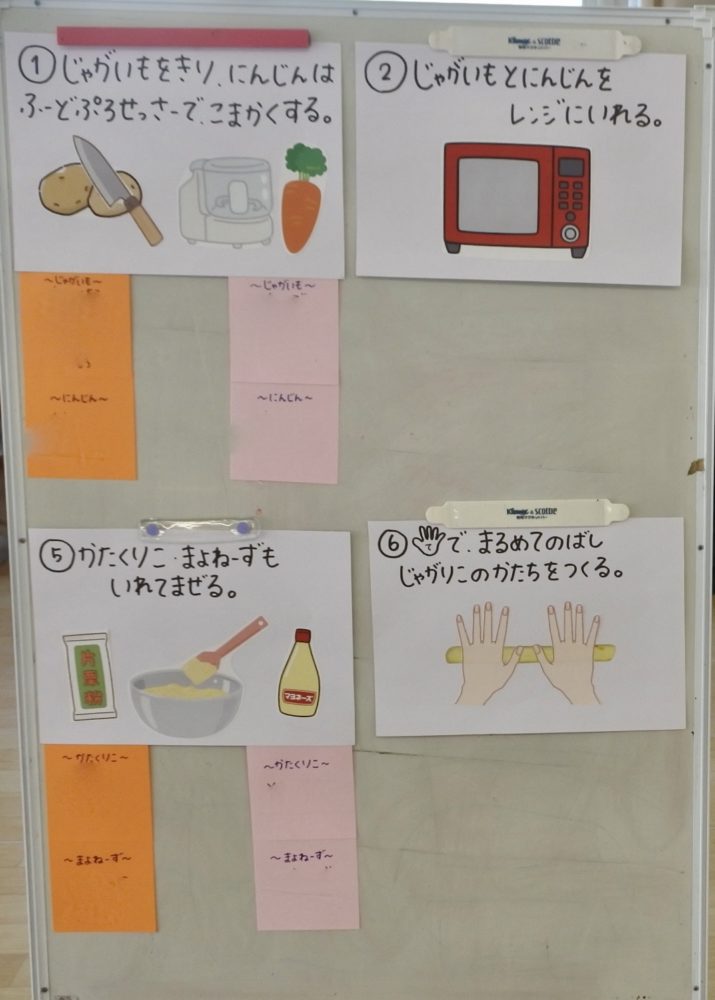 ①じゃがいもをきり、にんじんは
ふーどぷろせっさーで、こまかくする。
~じゃがいも~
~にんじん~
~じゃがいも~
~にんじん~
Kleenex & SCOTTIE
②じゃがいもとにんじんを
レンジにいれる。
⑤かたくりこ・まよねーずも
いれてまぜる。
片栗粉
マヨネーズ
~かたくりこ~
~まよねーず~
~かたくりこ~
~まよねーず~
Kleenex & SCOTTIE
⑥て で、まるめてのばし
じゃがりこのかたちをつくる。